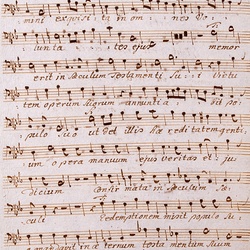 mini exquisita in om : nes Vo :
iunta : : teo ejus memor
erit in Sæculum Testamenti Su : i Virtu
tem operum Suorum annuntia : : bit po :
pulo suo ut det Illis Hæ reditatem genti :
um opera manuum ejus veritas et ju :
dicium Confir mata in sæculum Sæ :
culi Redemptionem misit populo su :
mandavit in æ ternum testa mentum Suum